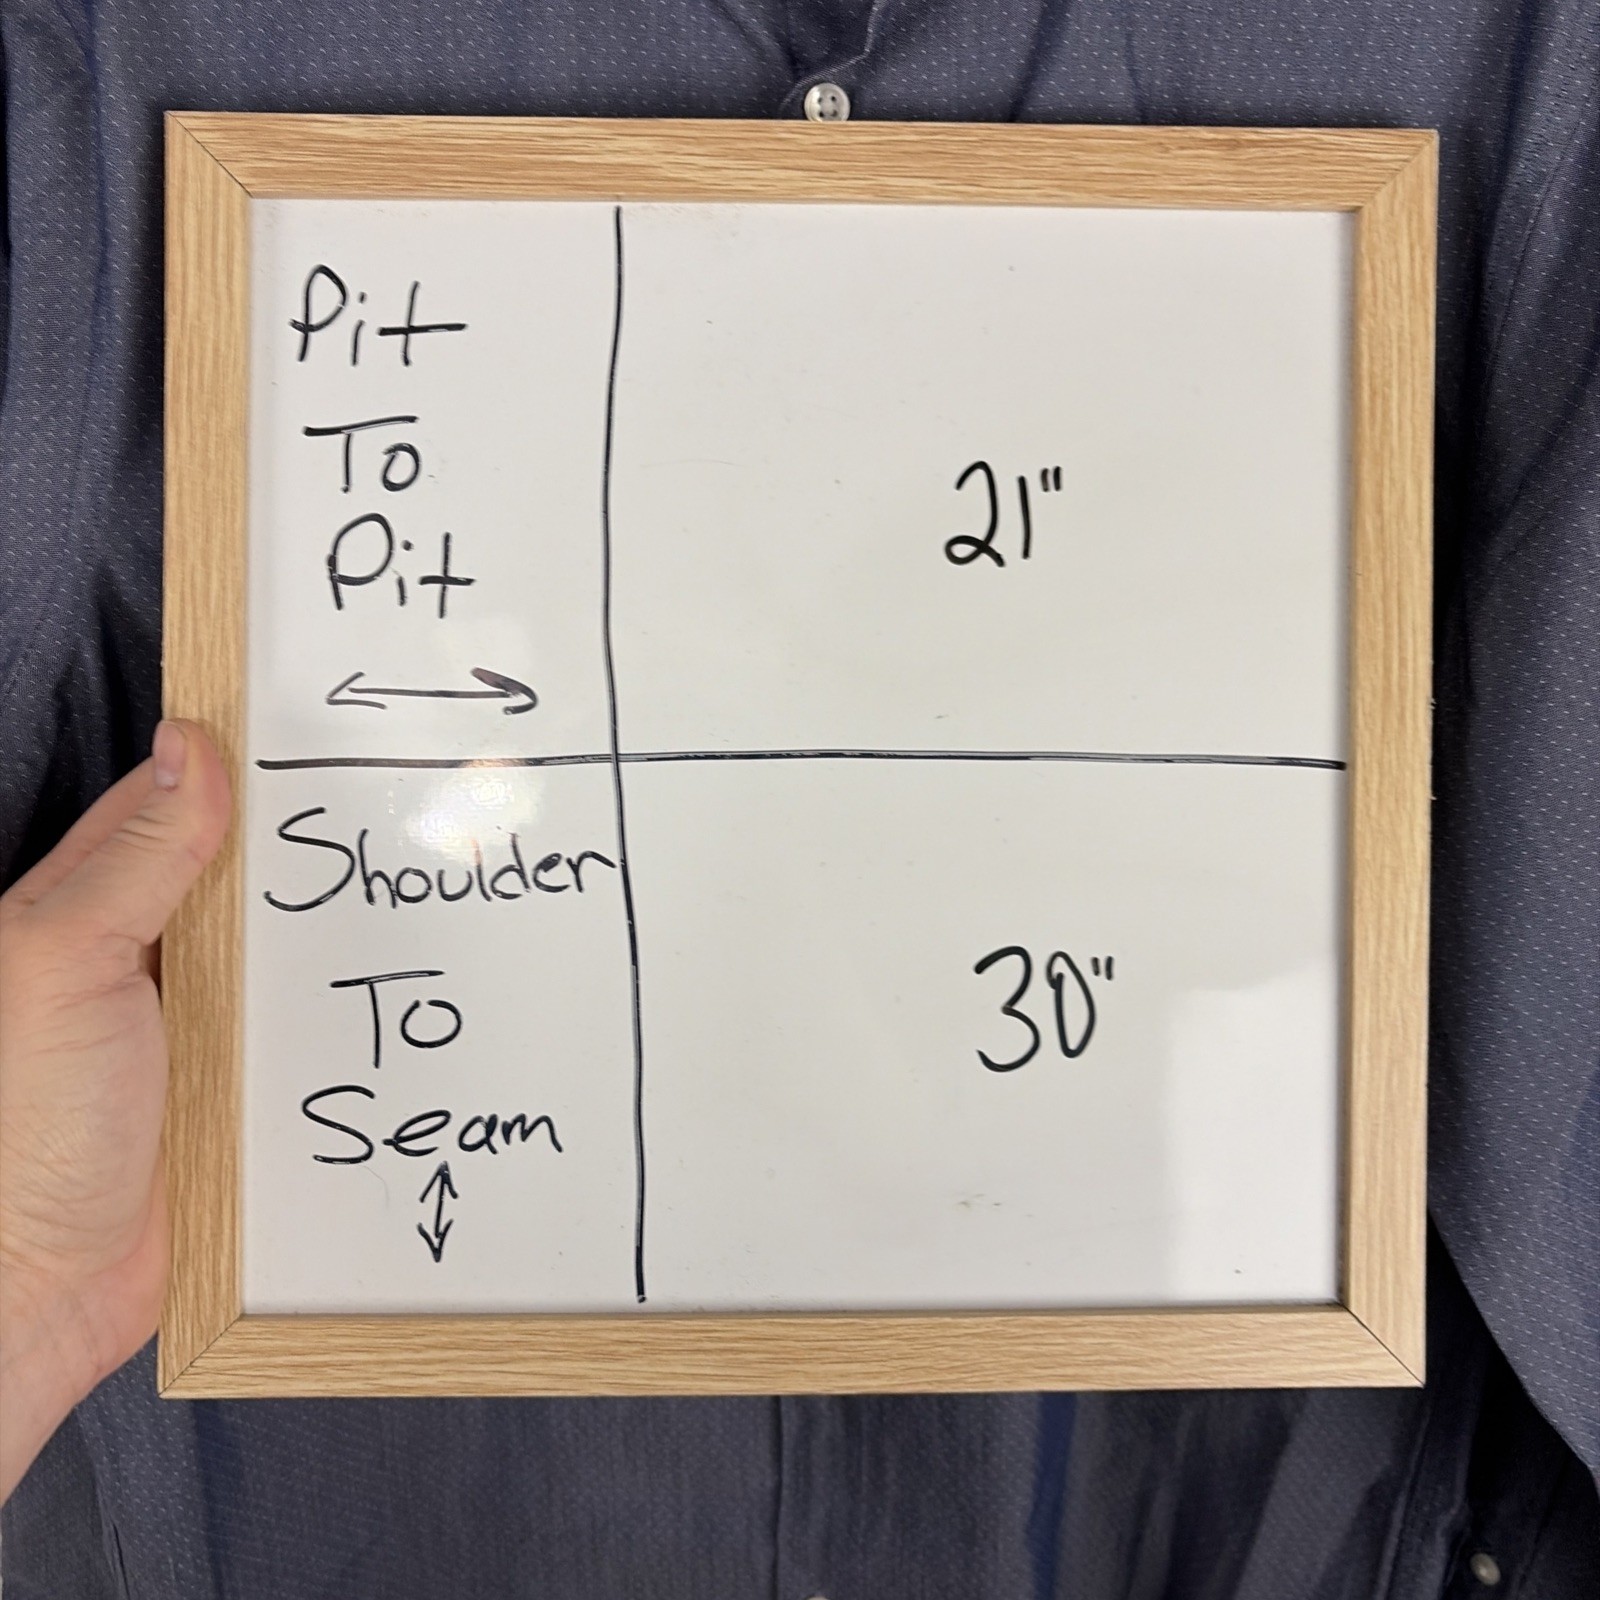 Pit
To
Pit
21"
Shoulder
To
Seam
30"